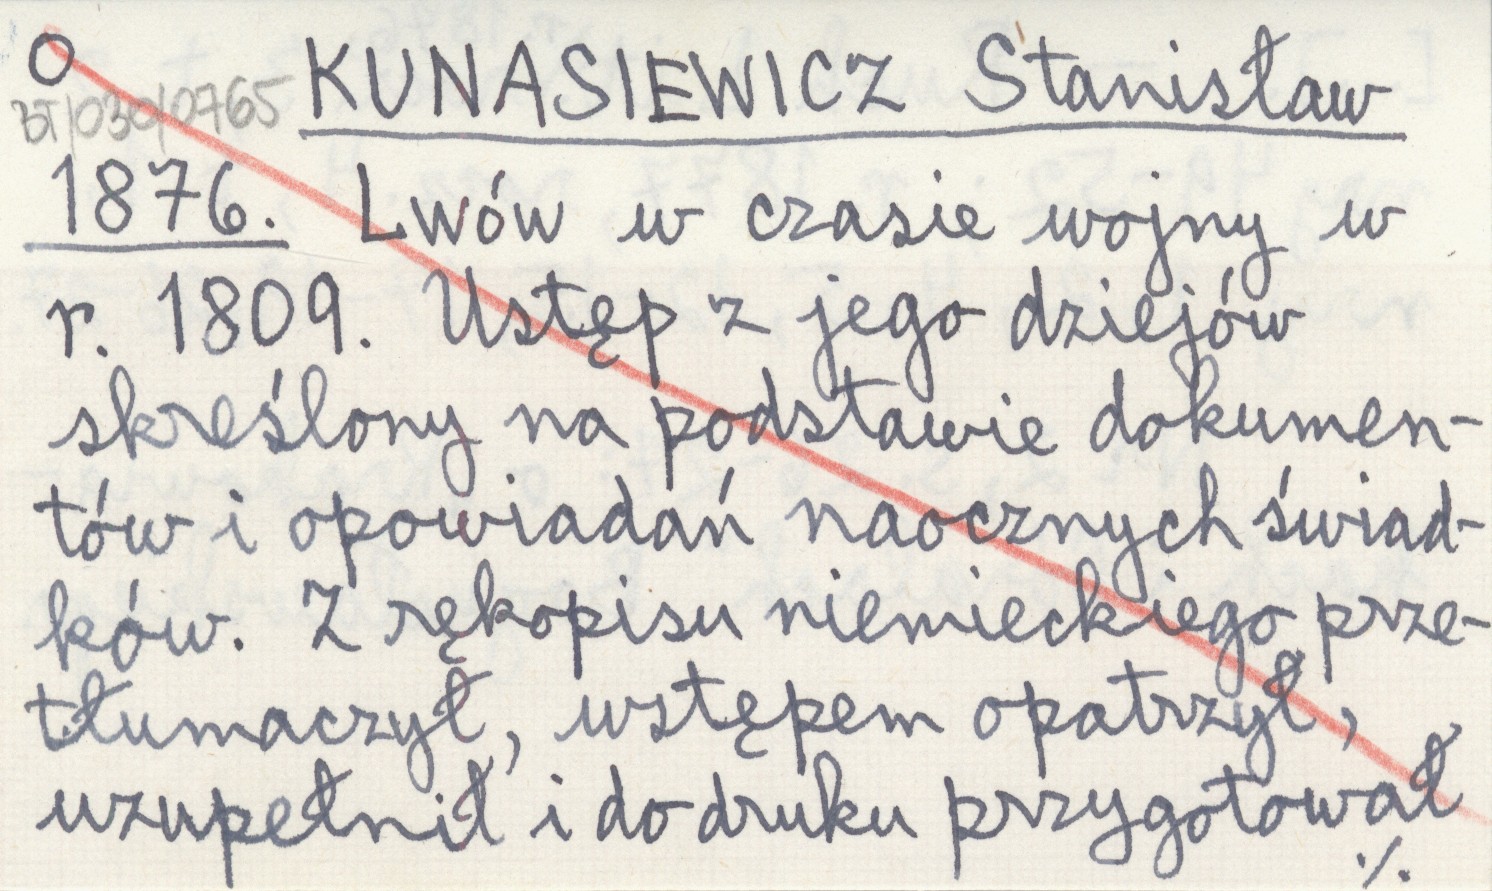 O KUNASIEWICZ Stanisław
BT/030/0765
1876. Lwów w czasie wojny w
r. 1809. Ustęp z jego dziejów
skreślony na podstawie dokumen-
tów i opowiadań naocznych świad-
ków. Z rękopisu niemieckiego prze-
tłumaczył, wstępem opatrzył,
uzupełnił i do druku przygotował
./.